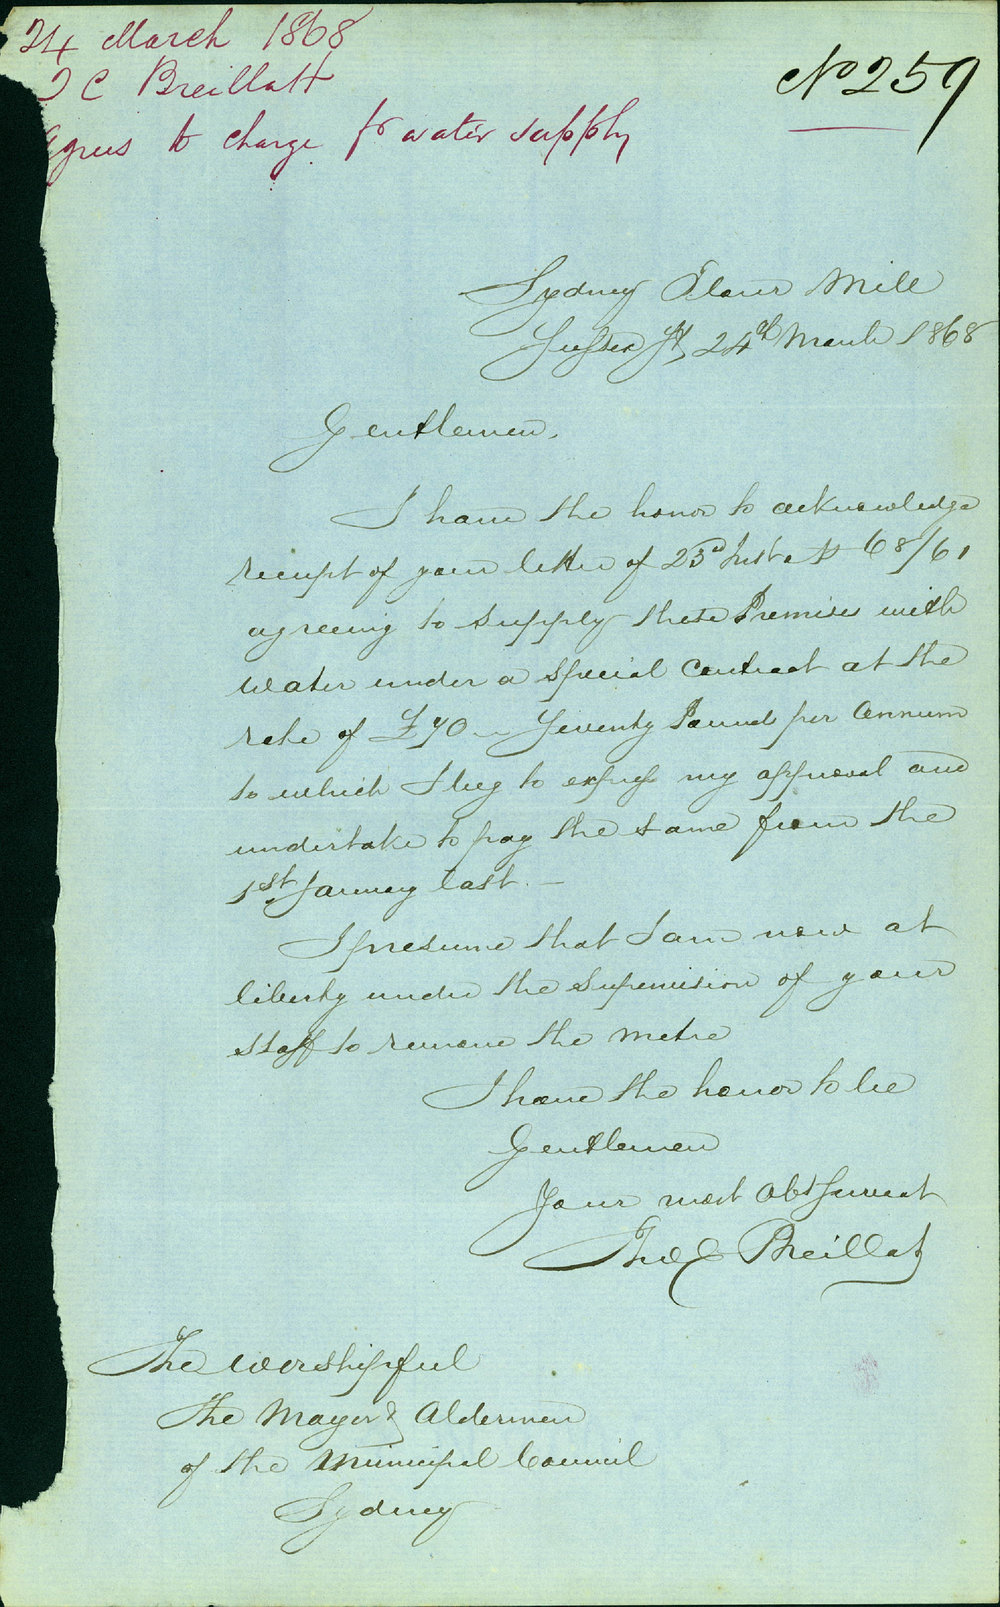 24 March 1868
T C Breillatt
agrees to charge for water supply
No 259
Sydney Flour Mill
Sussex St, 24th March 1868
Gentlemen,
I have the honor to acknowledge
receipt of your letter of 23d Inst. No 68/61
agreeing to supply these Premises with
water under a special contract at the
rate of £70 - Seventy Pounds per Annum
to which I beg to express my approval and
undertake to pay the same from the
1st January last. -
I presume that I am now at
liberty under the supervision of your
staff to remove the metre
I have the honor to be
Gentlemen
Your most Obt Servant
Thos C Breillat
The Worshipful
The Mayor & Aldermen
of the Municipal Council
Sydney